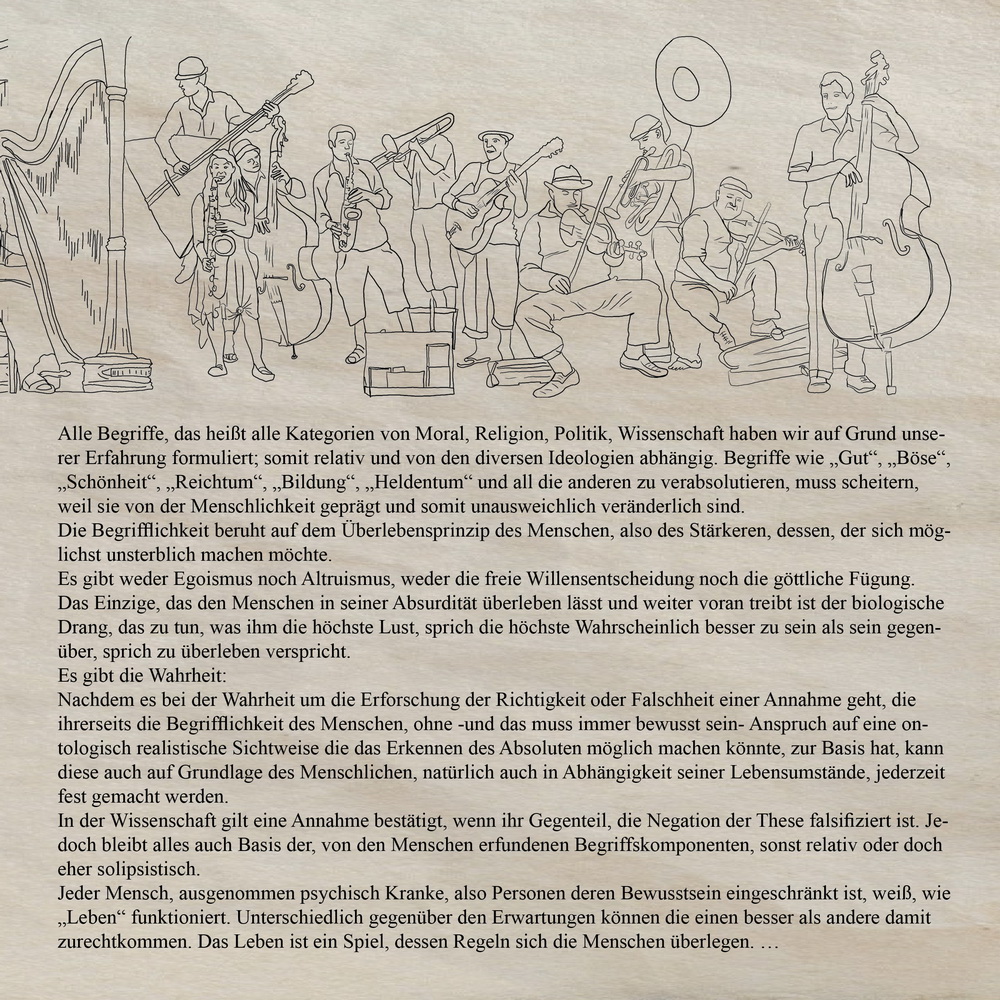 Alle Begriffe, das heißt alle Kategorien von Moral, Religion, Politik, Wissenschaft haben wir auf Grund unse-
rer Erfahrung formuliert; somit relativ und von den diversen Ideologien abhängig. Begriffe wie „Gut“, „Böse“,
„Schönheit“, „Reichtum“, „Bildung“, „Heldentum“ und all die anderen zu verabsolutieren, muss scheitern,
weil sie von der Menschlichkeit geprägt und somit unausweichlich veränderlich sind.
Die Begrifflichkeit beruht auf dem Überlebensprinzip des Menschen, also des Stärkeren, dessen, der sich mög-
lichst unsterblich machen möchte.
Es gibt weder Egoismus noch Altruismus, weder die freie Willensentscheidung noch die göttliche Fügung.
Das Einzige, das den Menschen in seiner Absurdität überleben lässt und weiter voran treibt ist der biologische
Drang, das zu tun, was ihm die höchste Lust, sprich die höchste Wahrscheinlich besser zu sein als sein gegen-
über, sprich zu überleben verspricht.
Es gibt die Wahrheit:
Nachdem es bei der Wahrheit um die Erforschung der Richtigkeit oder Falschheit einer Annahme geht, die
ihrerseits die Begrifflichkeit des Menschen, ohne -und das muss immer bewusst sein- Anspruch auf eine on-
tologisch realistische Sichtweise die das Erkennen des Absoluten möglich machen könnte, zur Basis hat, kann
diese auch auf Grundlage des Menschlichen, natürlich auch in Abhängigkeit seiner Lebensumstände, jederzeit
fest gemacht werden.
In der Wissenschaft gilt eine Annahme bestätigt, wenn ihr Gegenteil, die Negation der These falsifiziert ist. Je-
doch bleibt alles auch Basis der, von den Menschen erfundenen Begriffskomponenten, sonst relativ oder doch
eher solipsistisch.
Jeder Mensch, ausgenommen psychisch Kranke, also Personen deren Bewusstsein eingeschränkt ist, weiß, wie
„Leben“ funktioniert. Unterschiedlich gegenüber den Erwartungen können die einen besser als andere damit
zurechtkommen. Das Leben ist ein Spiel, dessen Regeln sich die Menschen überlegen. …